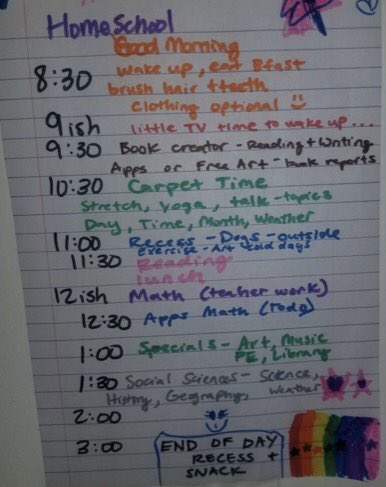 HomeSchool
Good Morning
8:30 wake up, eat Bfast
brush hair + teeth
clothing optional
9ish little TV time to wake up...
9:30 Book creator - Reading + Writing
Apps or Free Art - book reports
10:30 Carpet Time
Stretch, Yoga, talk - topics
Day, Time, Month, Weather
11:00 Recess - Dogs - outside
Exercise - Art cold days
11:30 Reading
Lunch
12ish Math (teacher work)
12:30 Apps Math
1:00 Specials - Art, Music
PE, Library
1:30 Social Sciences - Science,
History, Geography, Weather
2:00
3:00 END OF DAY
RECESS +
SNACK